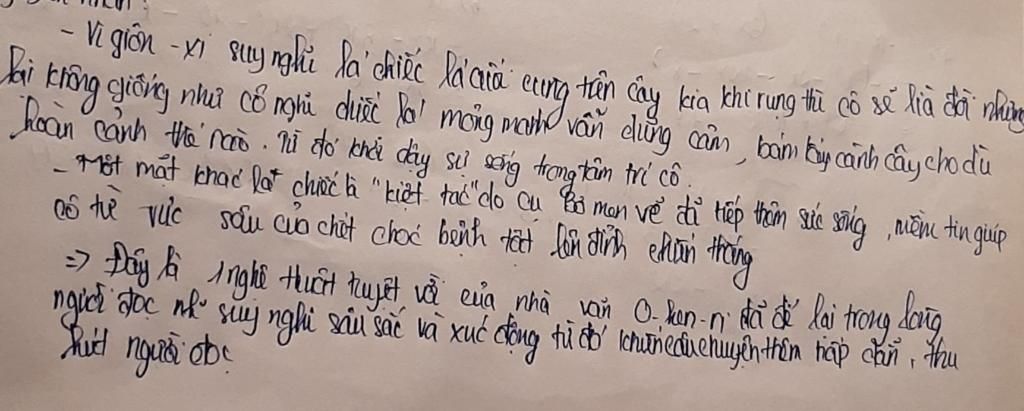 - Vì giôn - xi suy nghĩ là chiếc lá cuối cùng trên cây kia khi rụng thì cô sẽ lìa đời nhưng
lại không giống như cô nghĩ chiếc lá mỏng manh vẫn dũng cảm, bám lấy cành cây cho dù
hoàn cảnh thế nào. Từ đó khơi dậy sự sống trong tâm trí cô.
- Một mặt khác là chiếc lá "kiệt tác" do cụ Bơ men vẽ đã tiếp thêm sức sống, niềm tin giúp
cô từ vực sâu của chết chóc bệnh tật lên đỉnh chiến thắng
=> Đây là 1 nghệ thuật tuyệt vời của nhà văn O-hen-ri đã để lại trong lòng
người đọc suy nghĩ sâu sắc và xúc động từ đó khiến câu chuyện thêm hấp dẫn, thu
hút người đọc